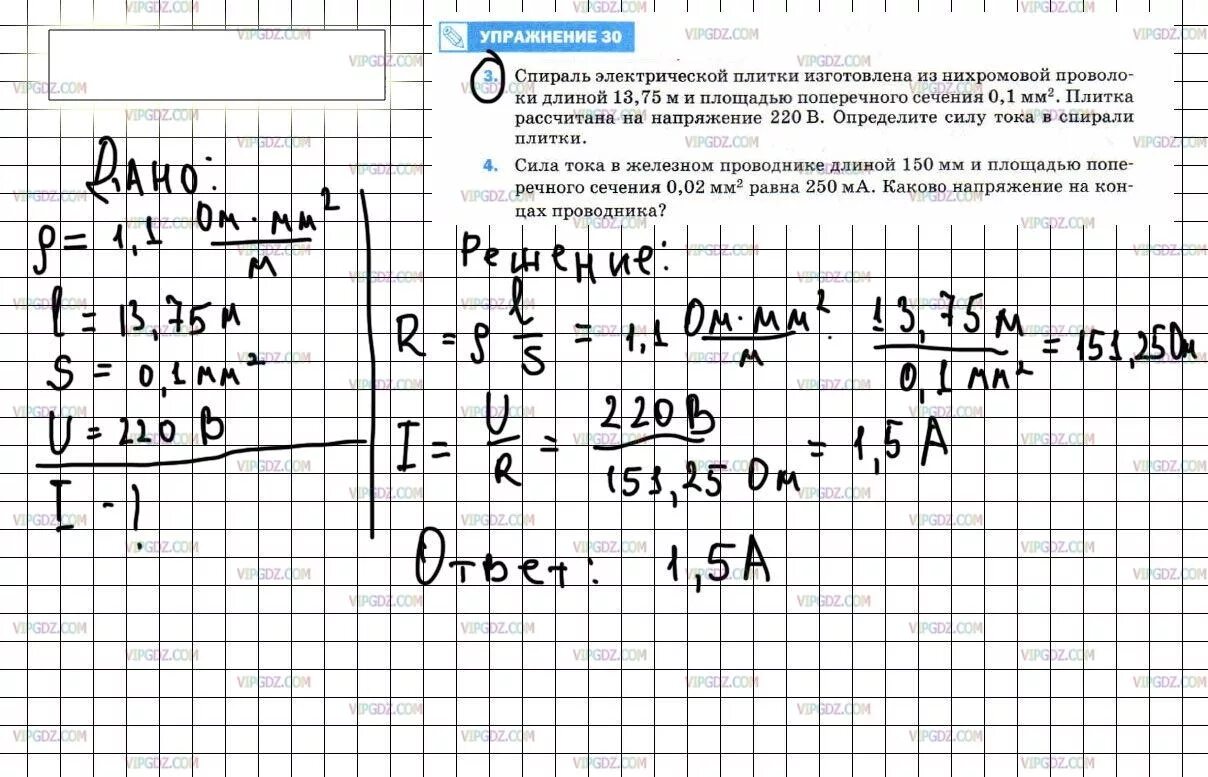 УПРАЖНЕНИЕ 30
3. Спираль электрической плитки изготовлена из нихромовой проволо-
ки длиной 13,75 м и площадью поперечного сечения 0,1 мм². Плитка
рассчитана на напряжение 220 В. Определите силу тока в спирали
плитки.
4. Сила тока в железном проводнике длиной 150 мм и площадью попе-
речного сечения 0,02 мм² равна 250 мА. Каково напряжение на кон-
цах проводника?
Дано:
ρ = 1,1 Ом · мм² / м
l = 13,75 м
S = 0,1 мм²
U = 220 В
I - ?
Решение:
R = ρ l / S = 1,1 Ом · мм² / м · 13,75 м / 0,1 мм² = 151,25 Ом
I = U / R = 220 В / 151,25 Ом = 1,5 А
Ответ: 1,5 А
VIPGDZ.COM